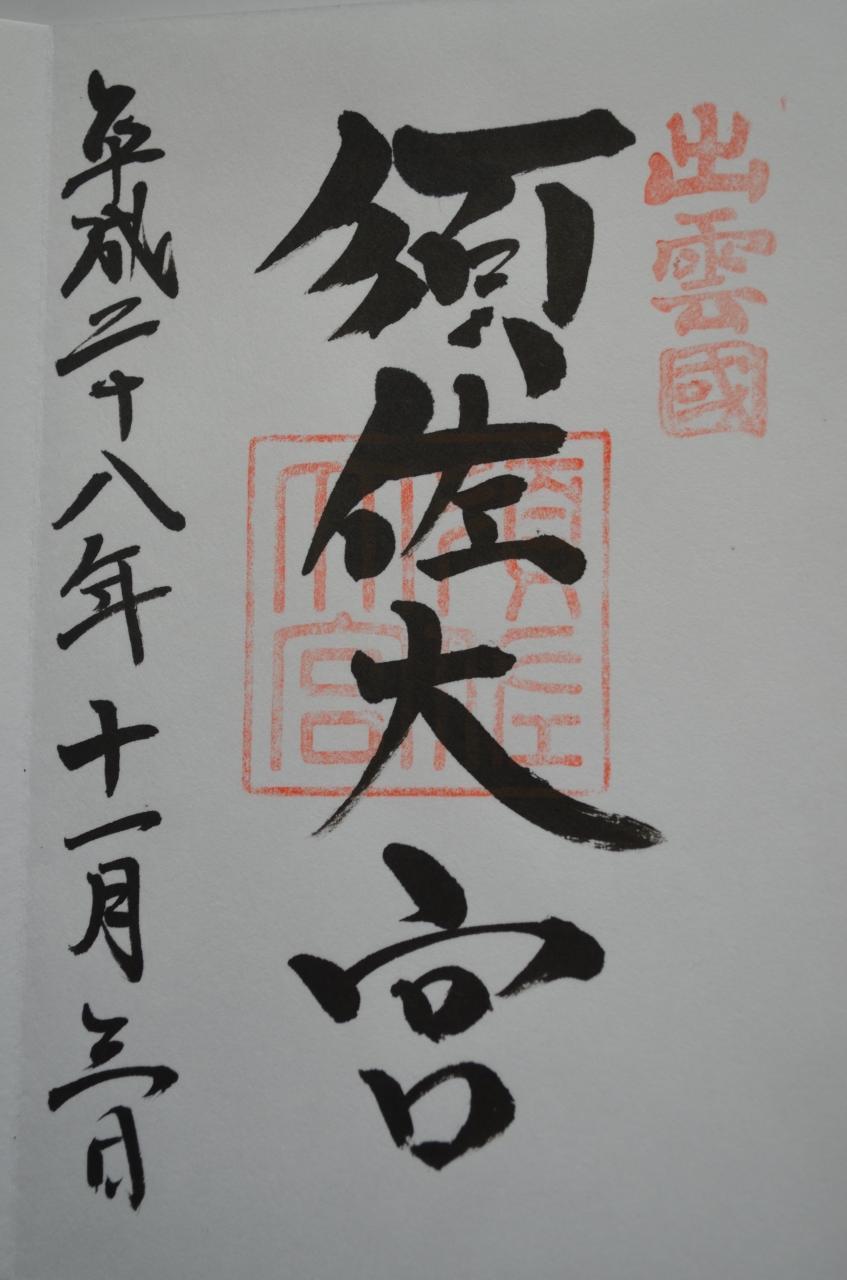 出雲國
須佐大宮
須佐大宮
平成二十八年十一月三日